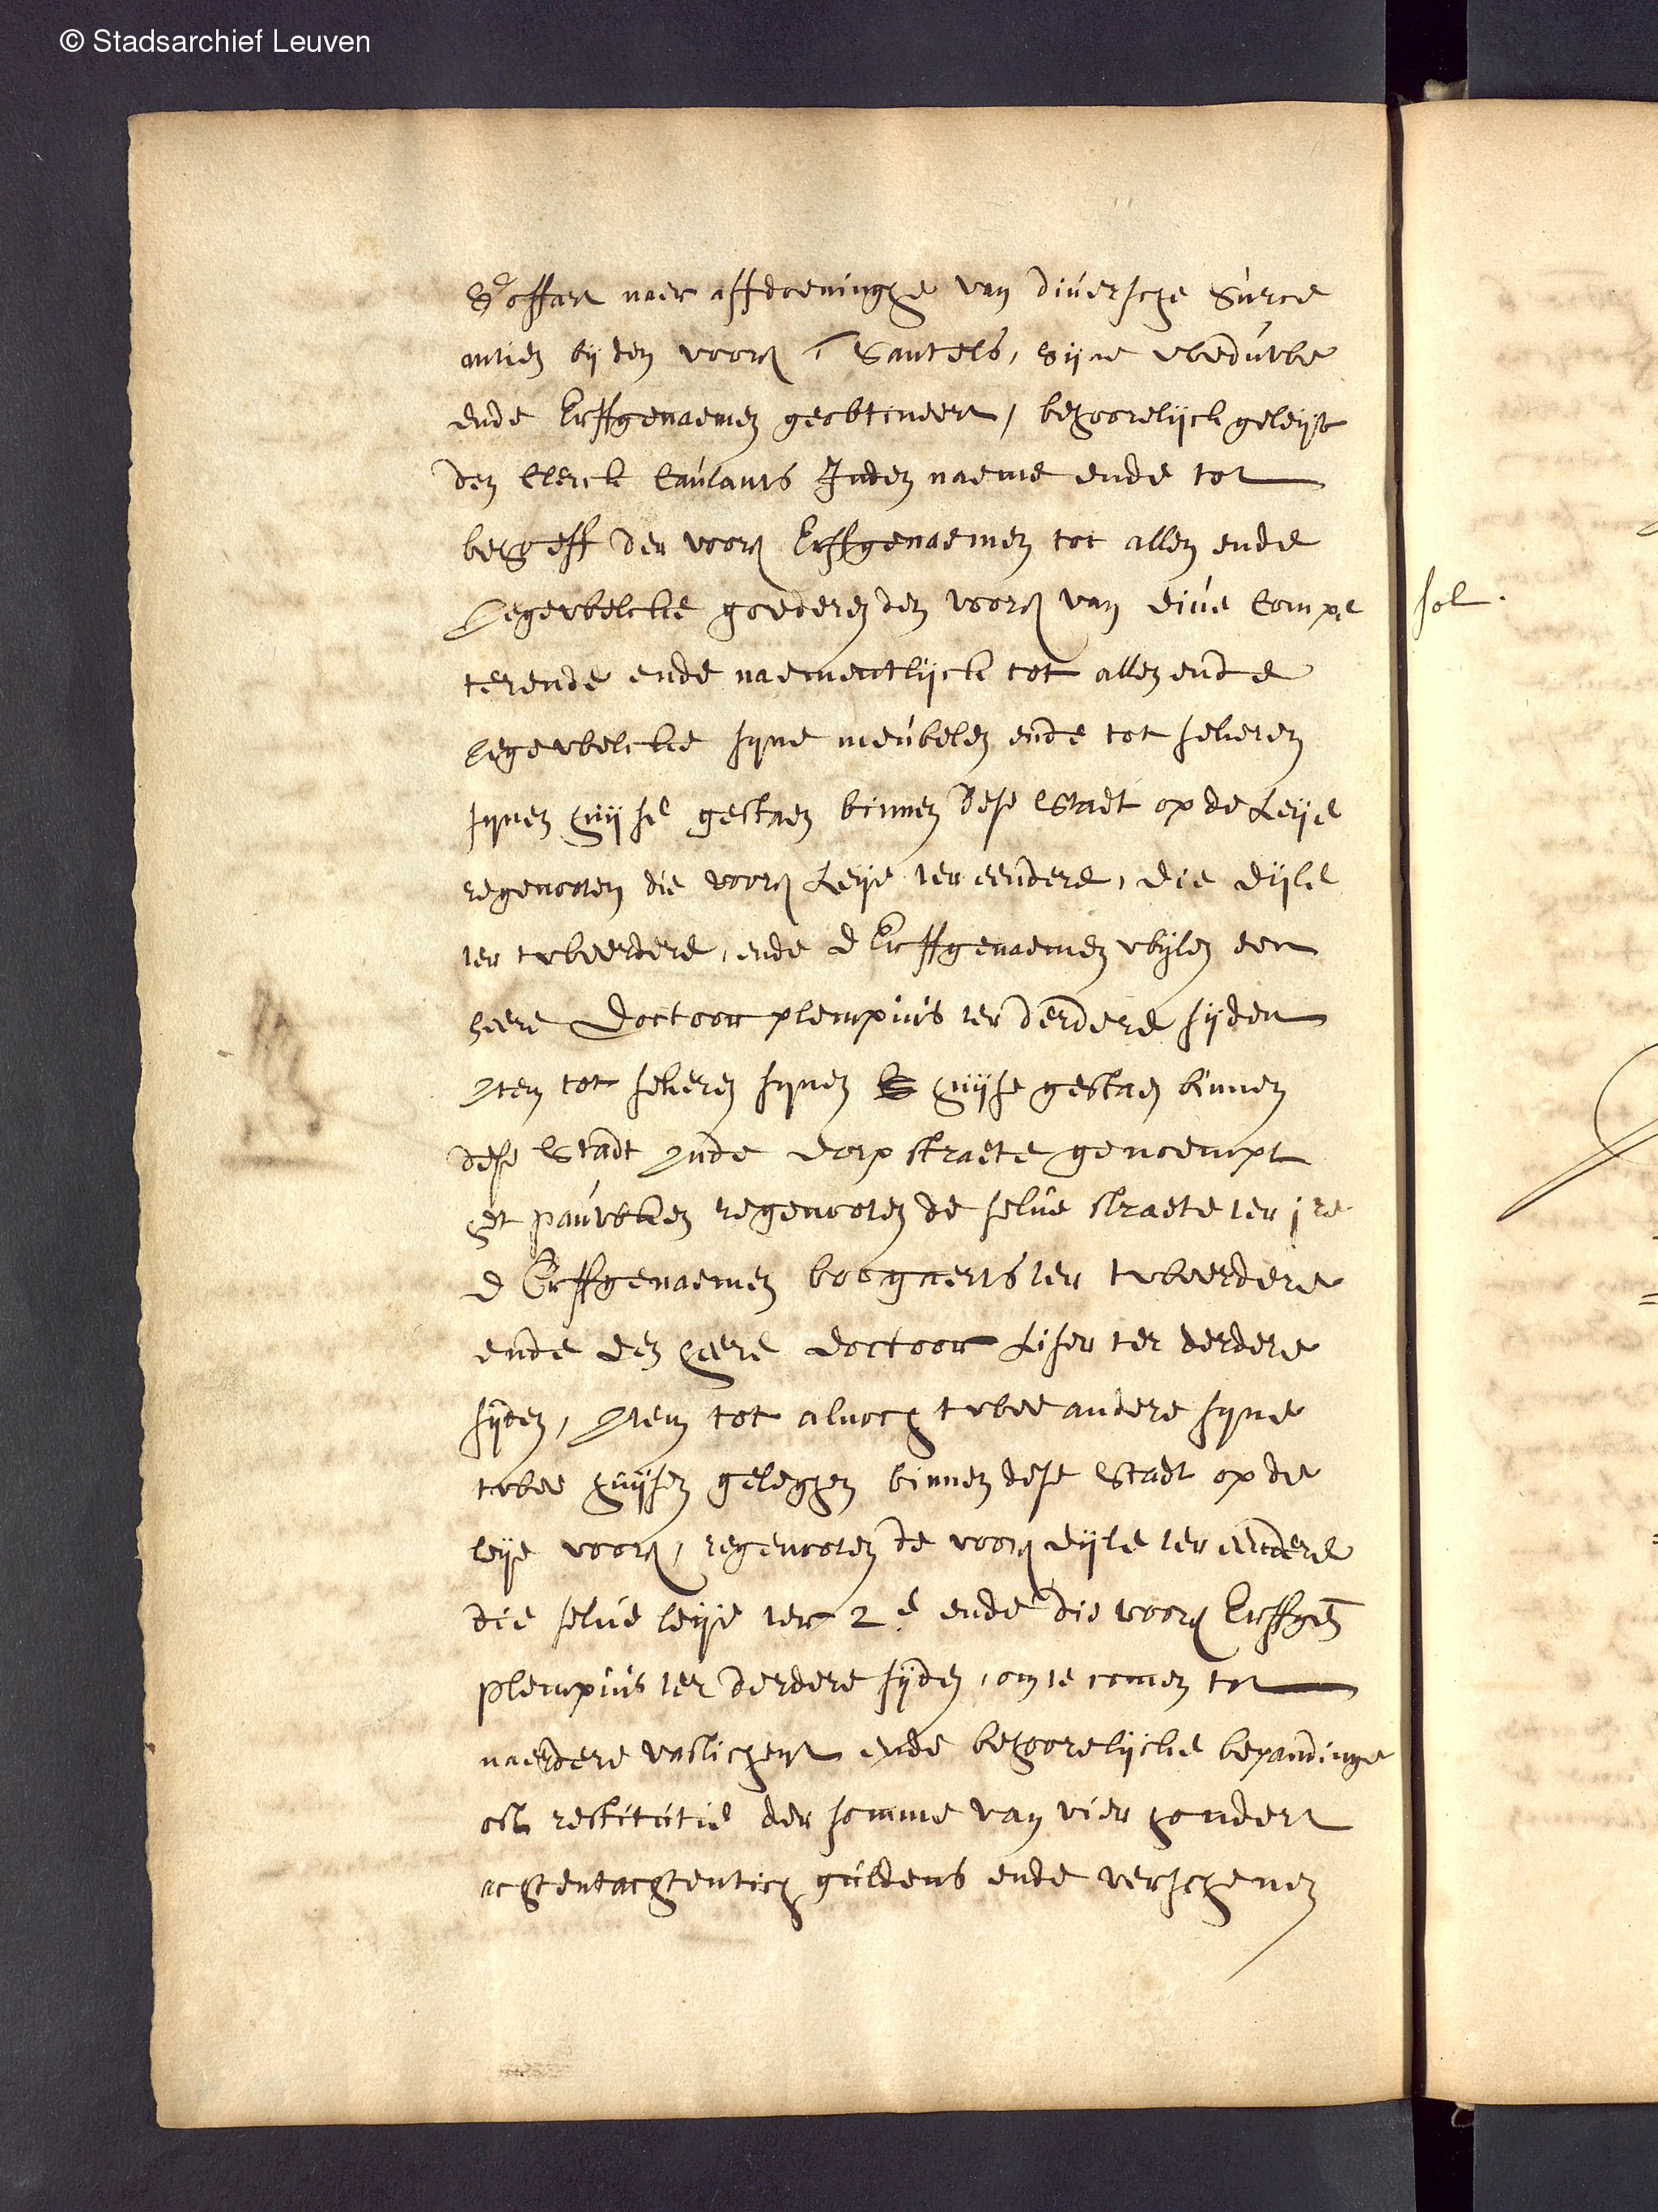 © Stadsarchief Leuven
S'offart naer affdoeninghe van diversche surce
antien bij den voors Santels, sijne weduwe
ende Erffgenaemen geobtineert, behoorelijck geleijt
den Clerck Caulants Inden naeme ende tot
behoeff der voors Erffgenaemen tot allen ende
Iegewelcke goederen den voors van Compe
terende ende naementlijck tot allen ende
iegewelcke syne meubelen ende tot sekeren
synen huijse gestaen binnen dese Stadt op de Leije
regenooten die voors Leije ter eendere, die dijle
ter tweedere, ende d Erffgenaemen wijlen den
heere Doctoor plempius ter derdere sijden
Item tot sekeren synen huijse gestaen binnen
dese Stadt Inde dorp straete genoempt
het pauwken regenooten de selve straete ter 1re
d Erffgenaemen boogaerts ter tweedere
ende den heere doctoor ter derdere
sijden, Item tot alnoch twee andere syne
twee huijsen geleghen binnen dese Stadt op de
leije voors, regenooten de voors dijle ter eendere
die selve leije ter 2e ende die voors Erffgen
Plempius ter derdere sijden, om te comen tot
naerdere vasticheijt ende behoorelijcke bepandinge
oft restitutie der somme van vier hondert
achtentachtentich guldens ende verschenen
sol.